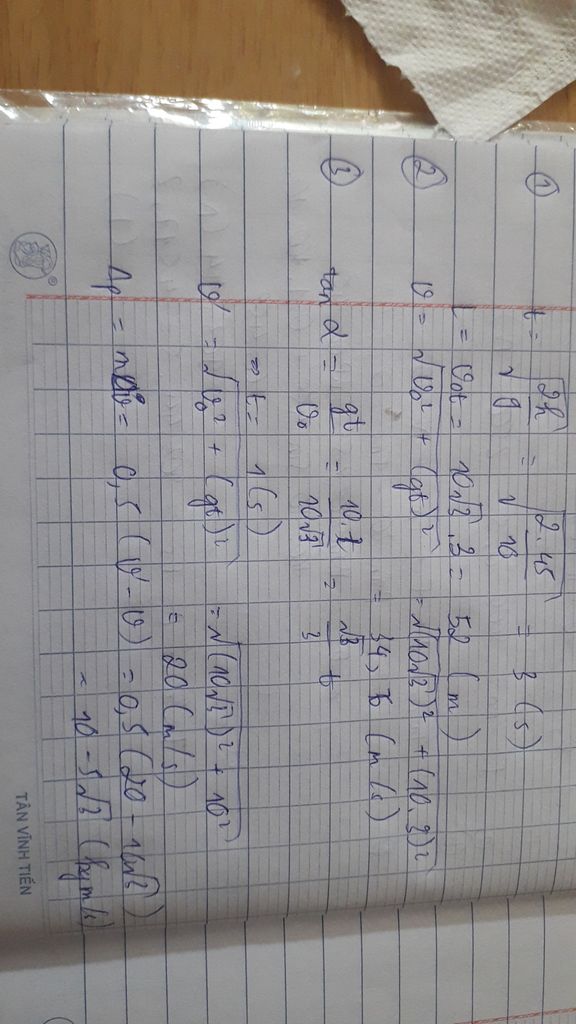 ① t = √(2h/g) = √(2.45/10) = 3 (s)
L = v₀t = 10√3 . 3 = 52 (m)
② v = √(v₀² + (gt)²) = √((10√3)² + (10.3)²)
= 34,6 (m/s)
③ tan α = gt/v₀ = 10.t/10√3 = √3/3 t
⇒ t = 1(s)
v' = √(v₀² + (gt)²) = √((10√3)² + 10²)
= 20 (m/s)
Δp = mΔv = 0,5 (v' - v) = 0,5 (20 - 10√3)
= 10 - 5√3 (kgm/s)
® TÂN VĨNH TIẾN